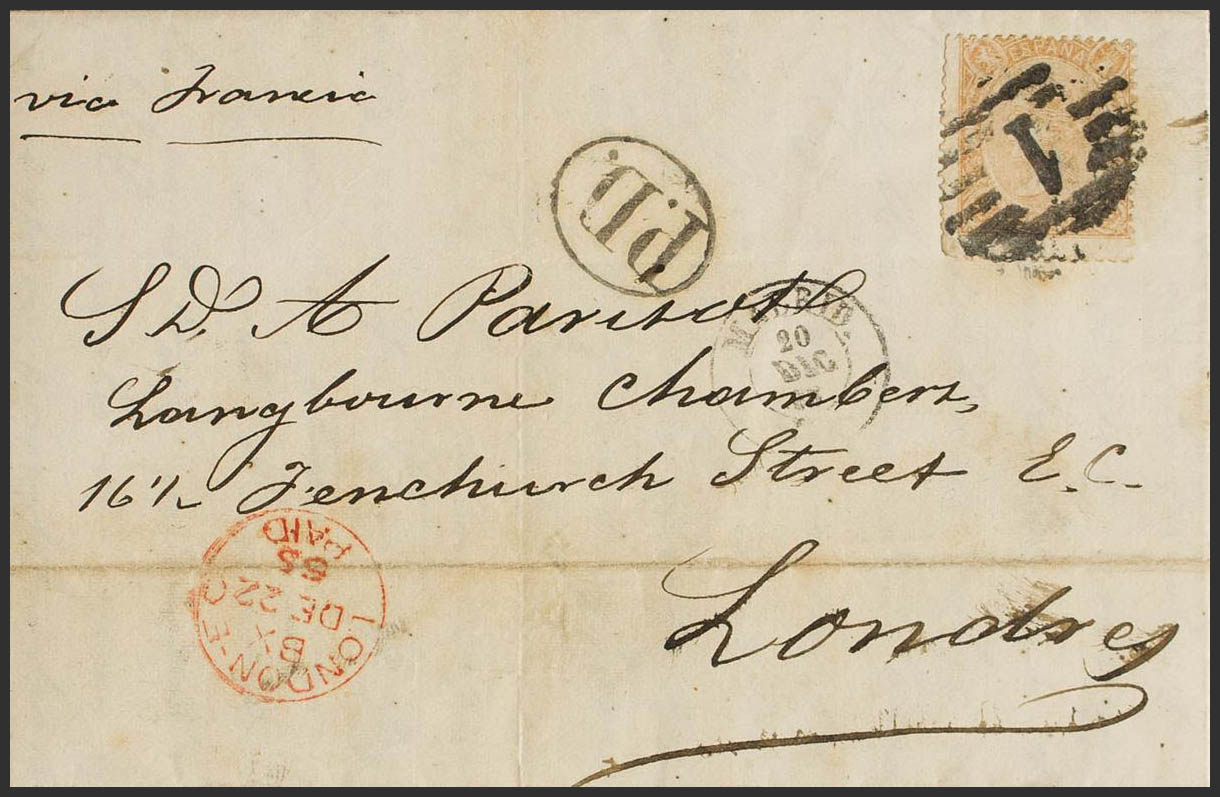 via Francia
ESPAÑA
1
P.D.
S D. A Parisot
MADRID
20
DIC
Langbourne Chambers,
16½ Fenchurch Street E.C.
LONDON-EC
BY
DE 22
65
PAID
Londres